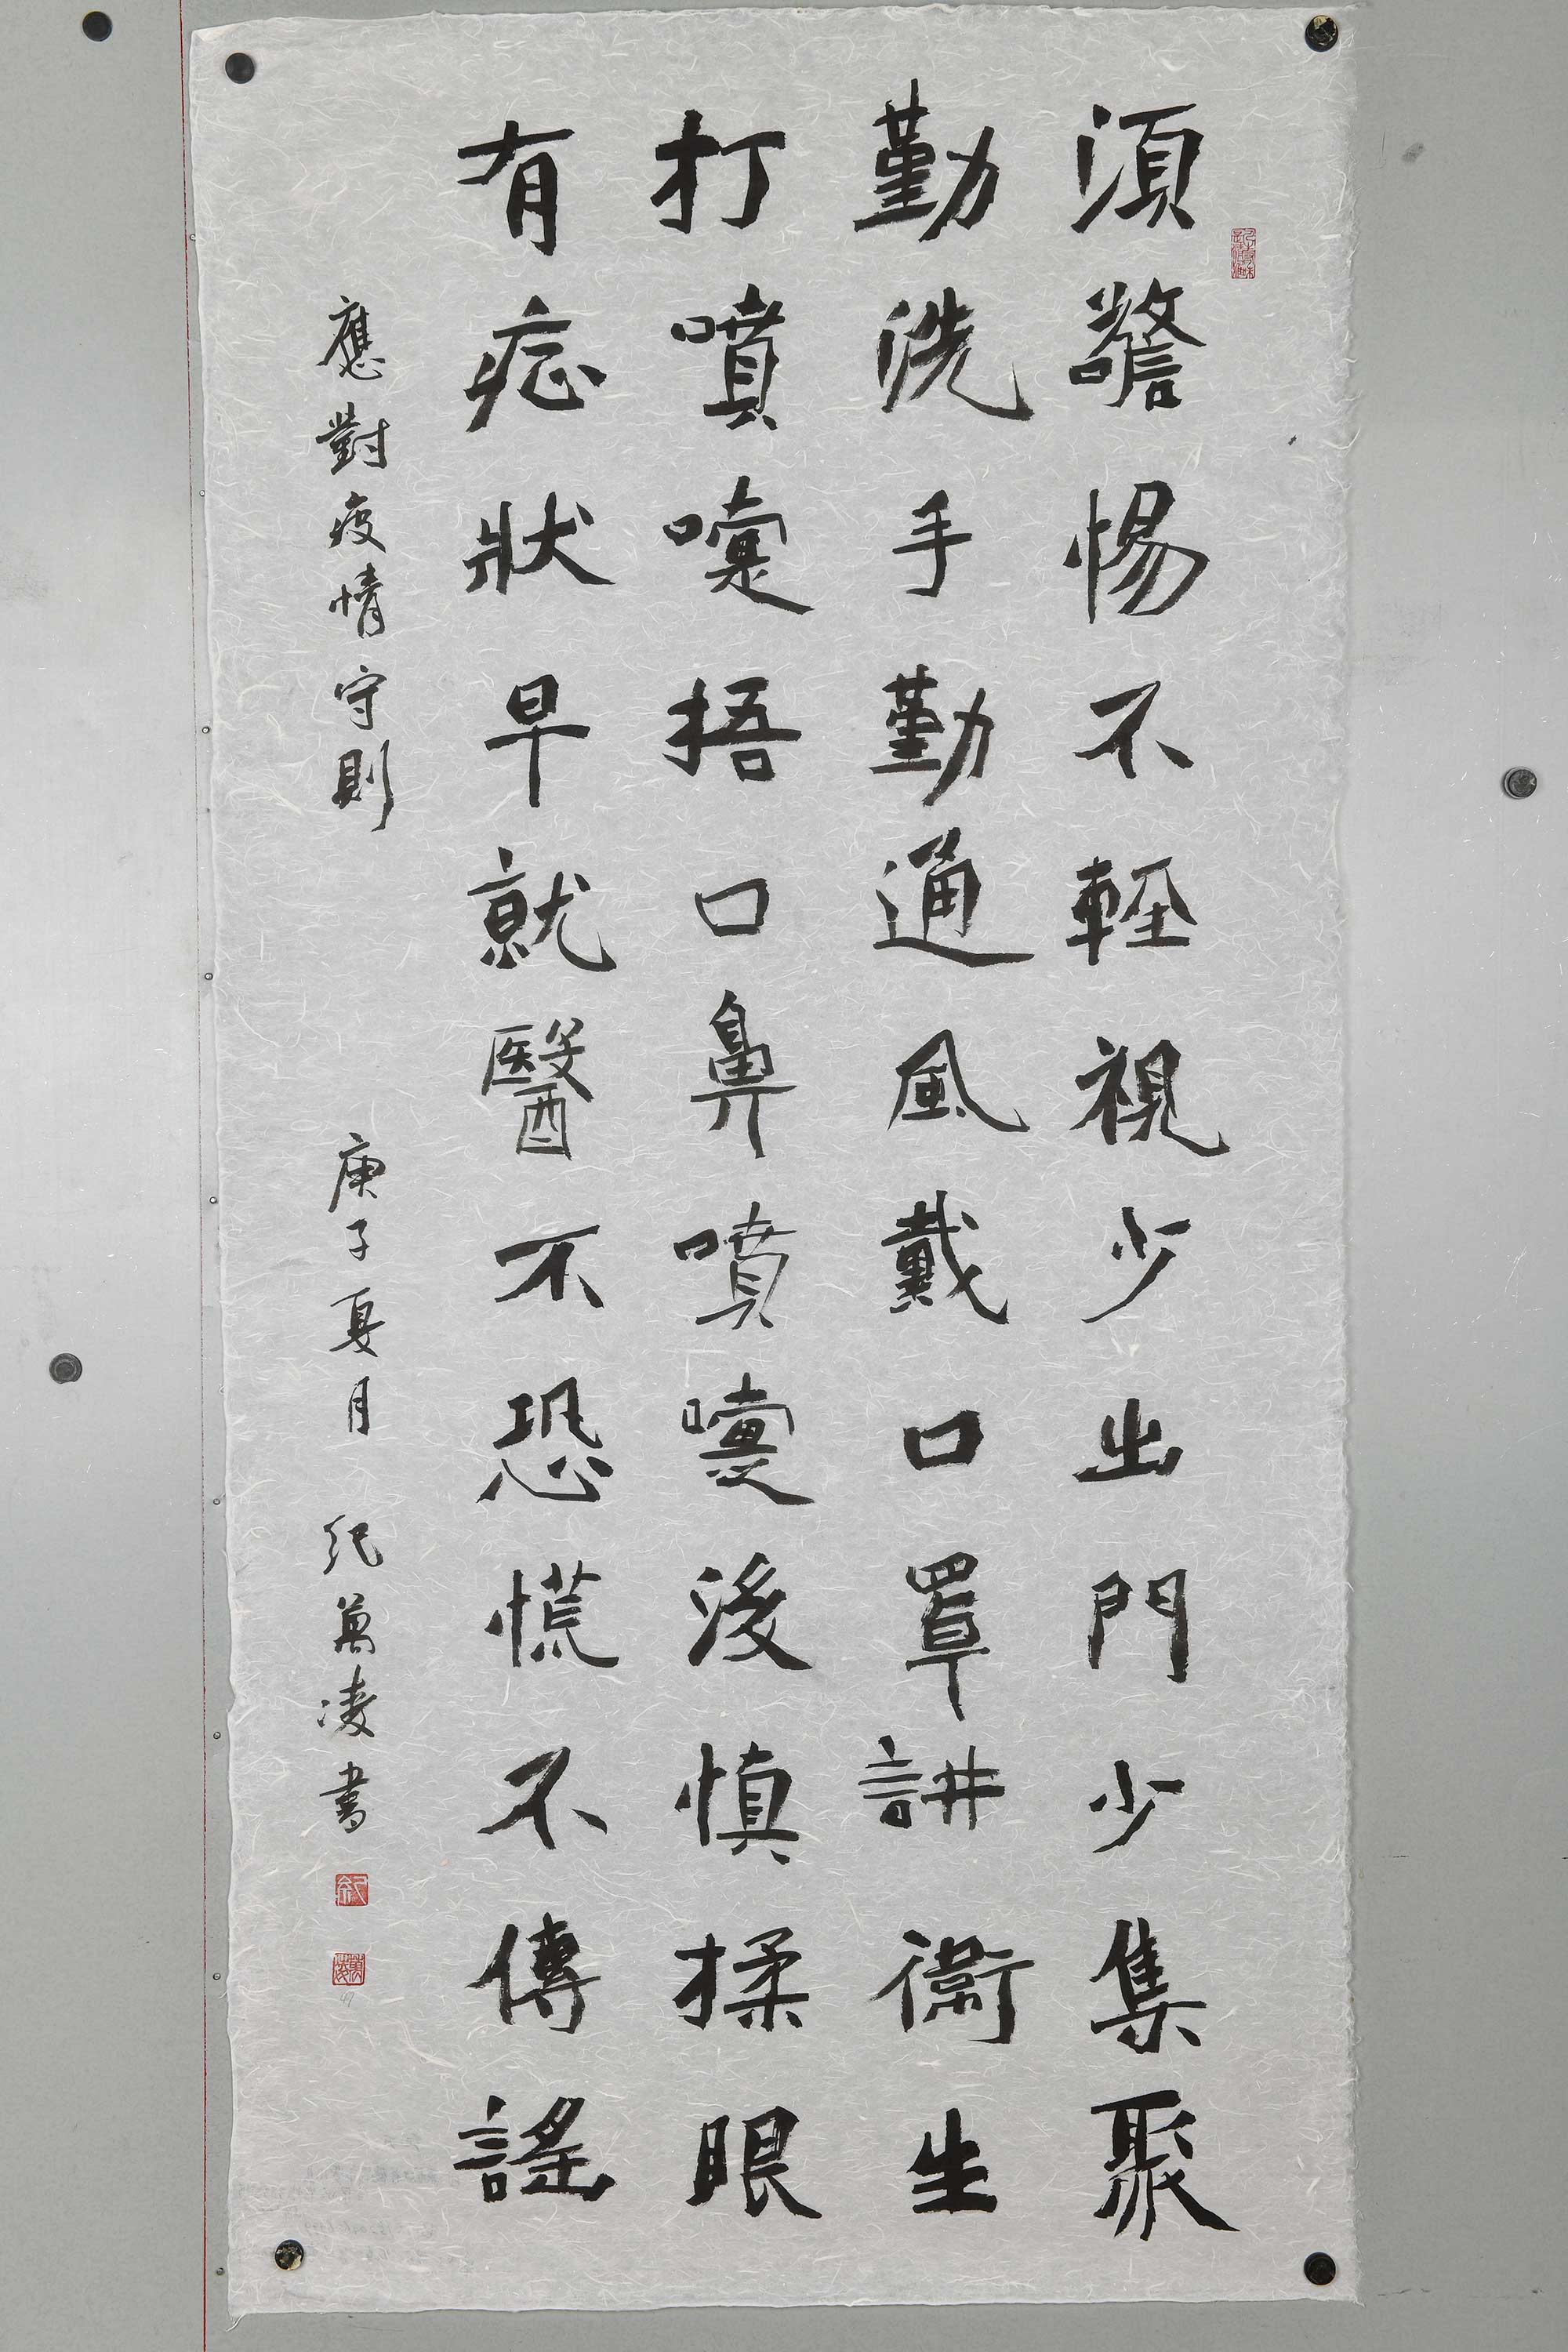 須警惕不輕視少出門少集聚
勤洗手勤通風戴口罩講衛生
打噴嚏捂口鼻噴嚏後慎揉眼
有症狀早就醫不恐慌不傳謠
應對疫情守則
庚子夏月 紀萬凌書